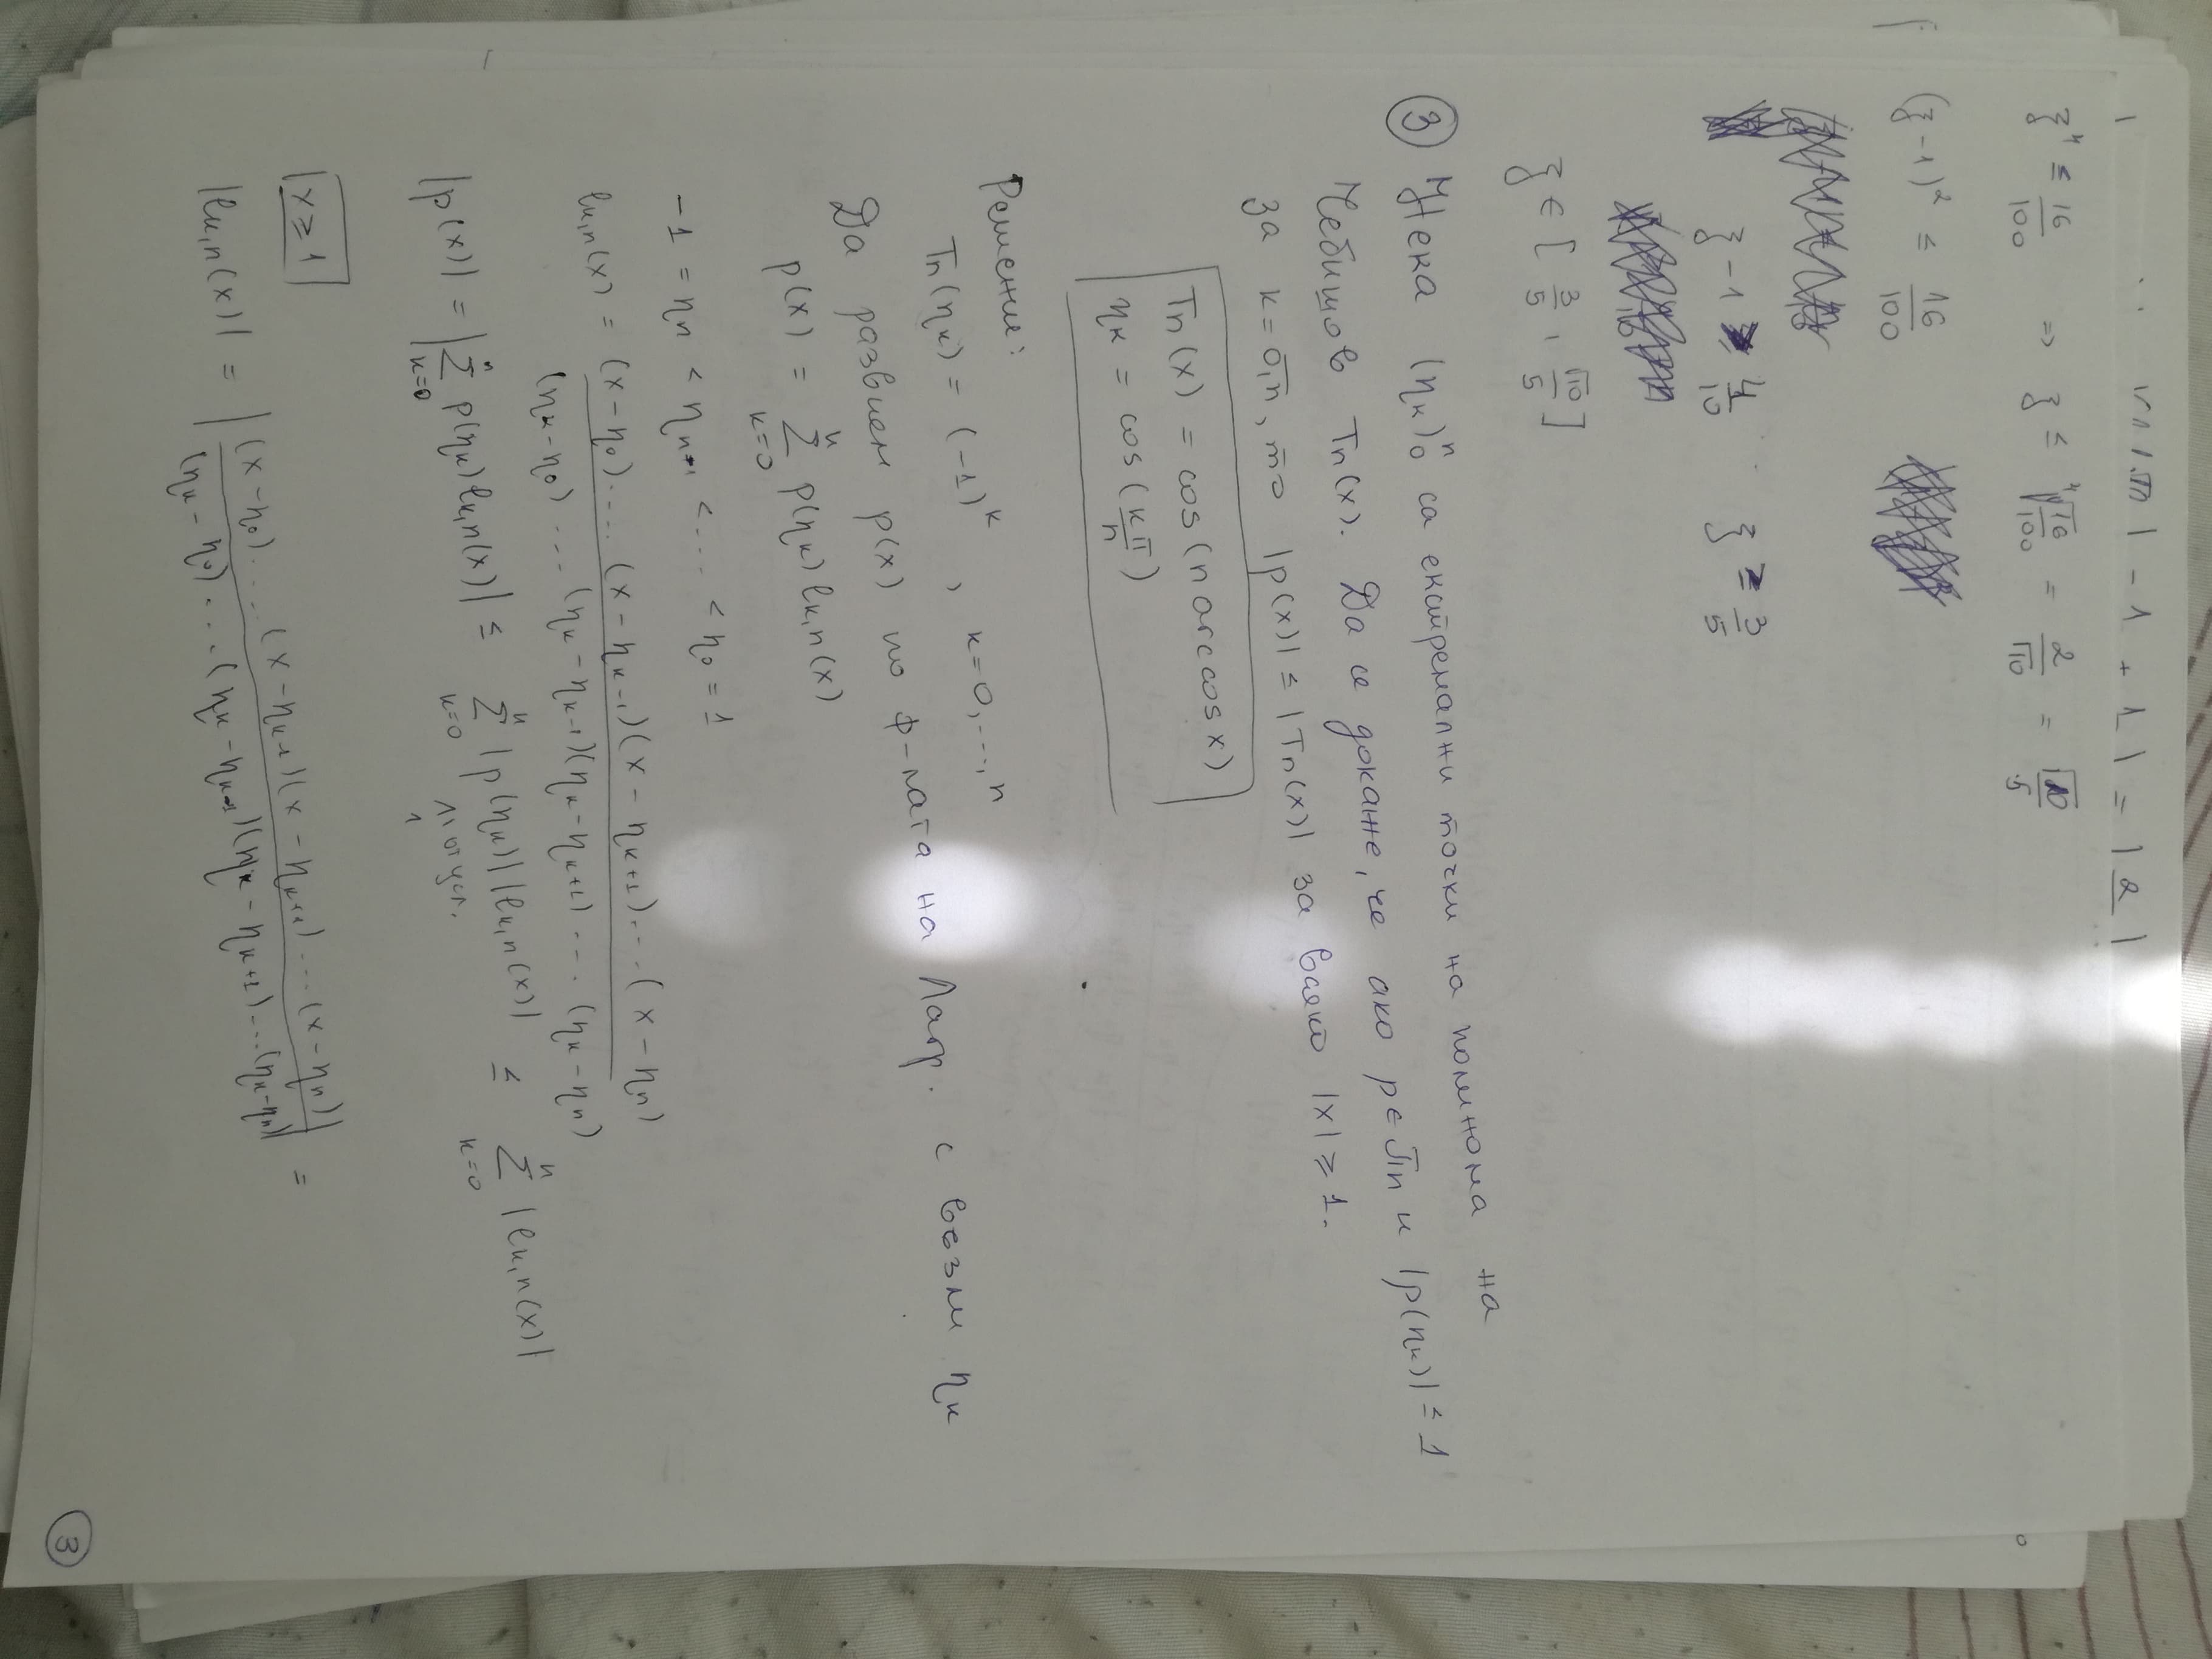 | - 1 + 1 | = | 2 |
ξ⁴ ≤ 16/100 => ξ ≤ ⁴√(16/100) = 2/√10 = √10/5
(ξ-1)² ≤ 16/100
ξ-1 ≥ 4/10 ξ ≥ 3/5
ξ ∈ [ 3/5 , √10/5 ]
③ Нека (ηk)₀ⁿ са екстремални точки на полинома на
Чебишов Tn(x). Да се докаже, че ако p ∈ πn и |p(ηk)| ≤ 1
за k = 0,n, то |p(x)| ≤ |Tn(x)| за всяко |x| ≥ 1.
Tn(x) = cos(n arccos x)
ηk = cos(kπ/n)
Решение:
Tn(ηk) = (-1)^k , k=0,...,n
Да развием p(x) по ф-лата на Лагр. с възли ηk
p(x) = Σ_{k=0}^{n} p(ηk) lk,n(x)
-1 = ηn < ηn-1 < ... < η0 = 1
lk,n(x) = (x-η0)....(x-ηk-1)(x-ηk+1)...(x-ηn) / (ηk-η0)...(ηk-ηk-1)(ηk-ηk+1)...(ηk-ηn)
|p(x)| = |Σ_{k=0}^{n} p(ηk) lk,n(x)| ≤ Σ_{k=0}^{n} |p(ηk)| |lk,n(x)| ≤ Σ_{k=0}^{n} |lk,n(x)|
от усл.
1
x ≥ 1
|lk,n(x)| = |(x-η0)....(x-ηk-1)(x-ηk+1)...(x-ηn) / (ηk-η0)...(ηk-ηk-1)(ηk-ηk+1)...(ηk-ηn)| =
3